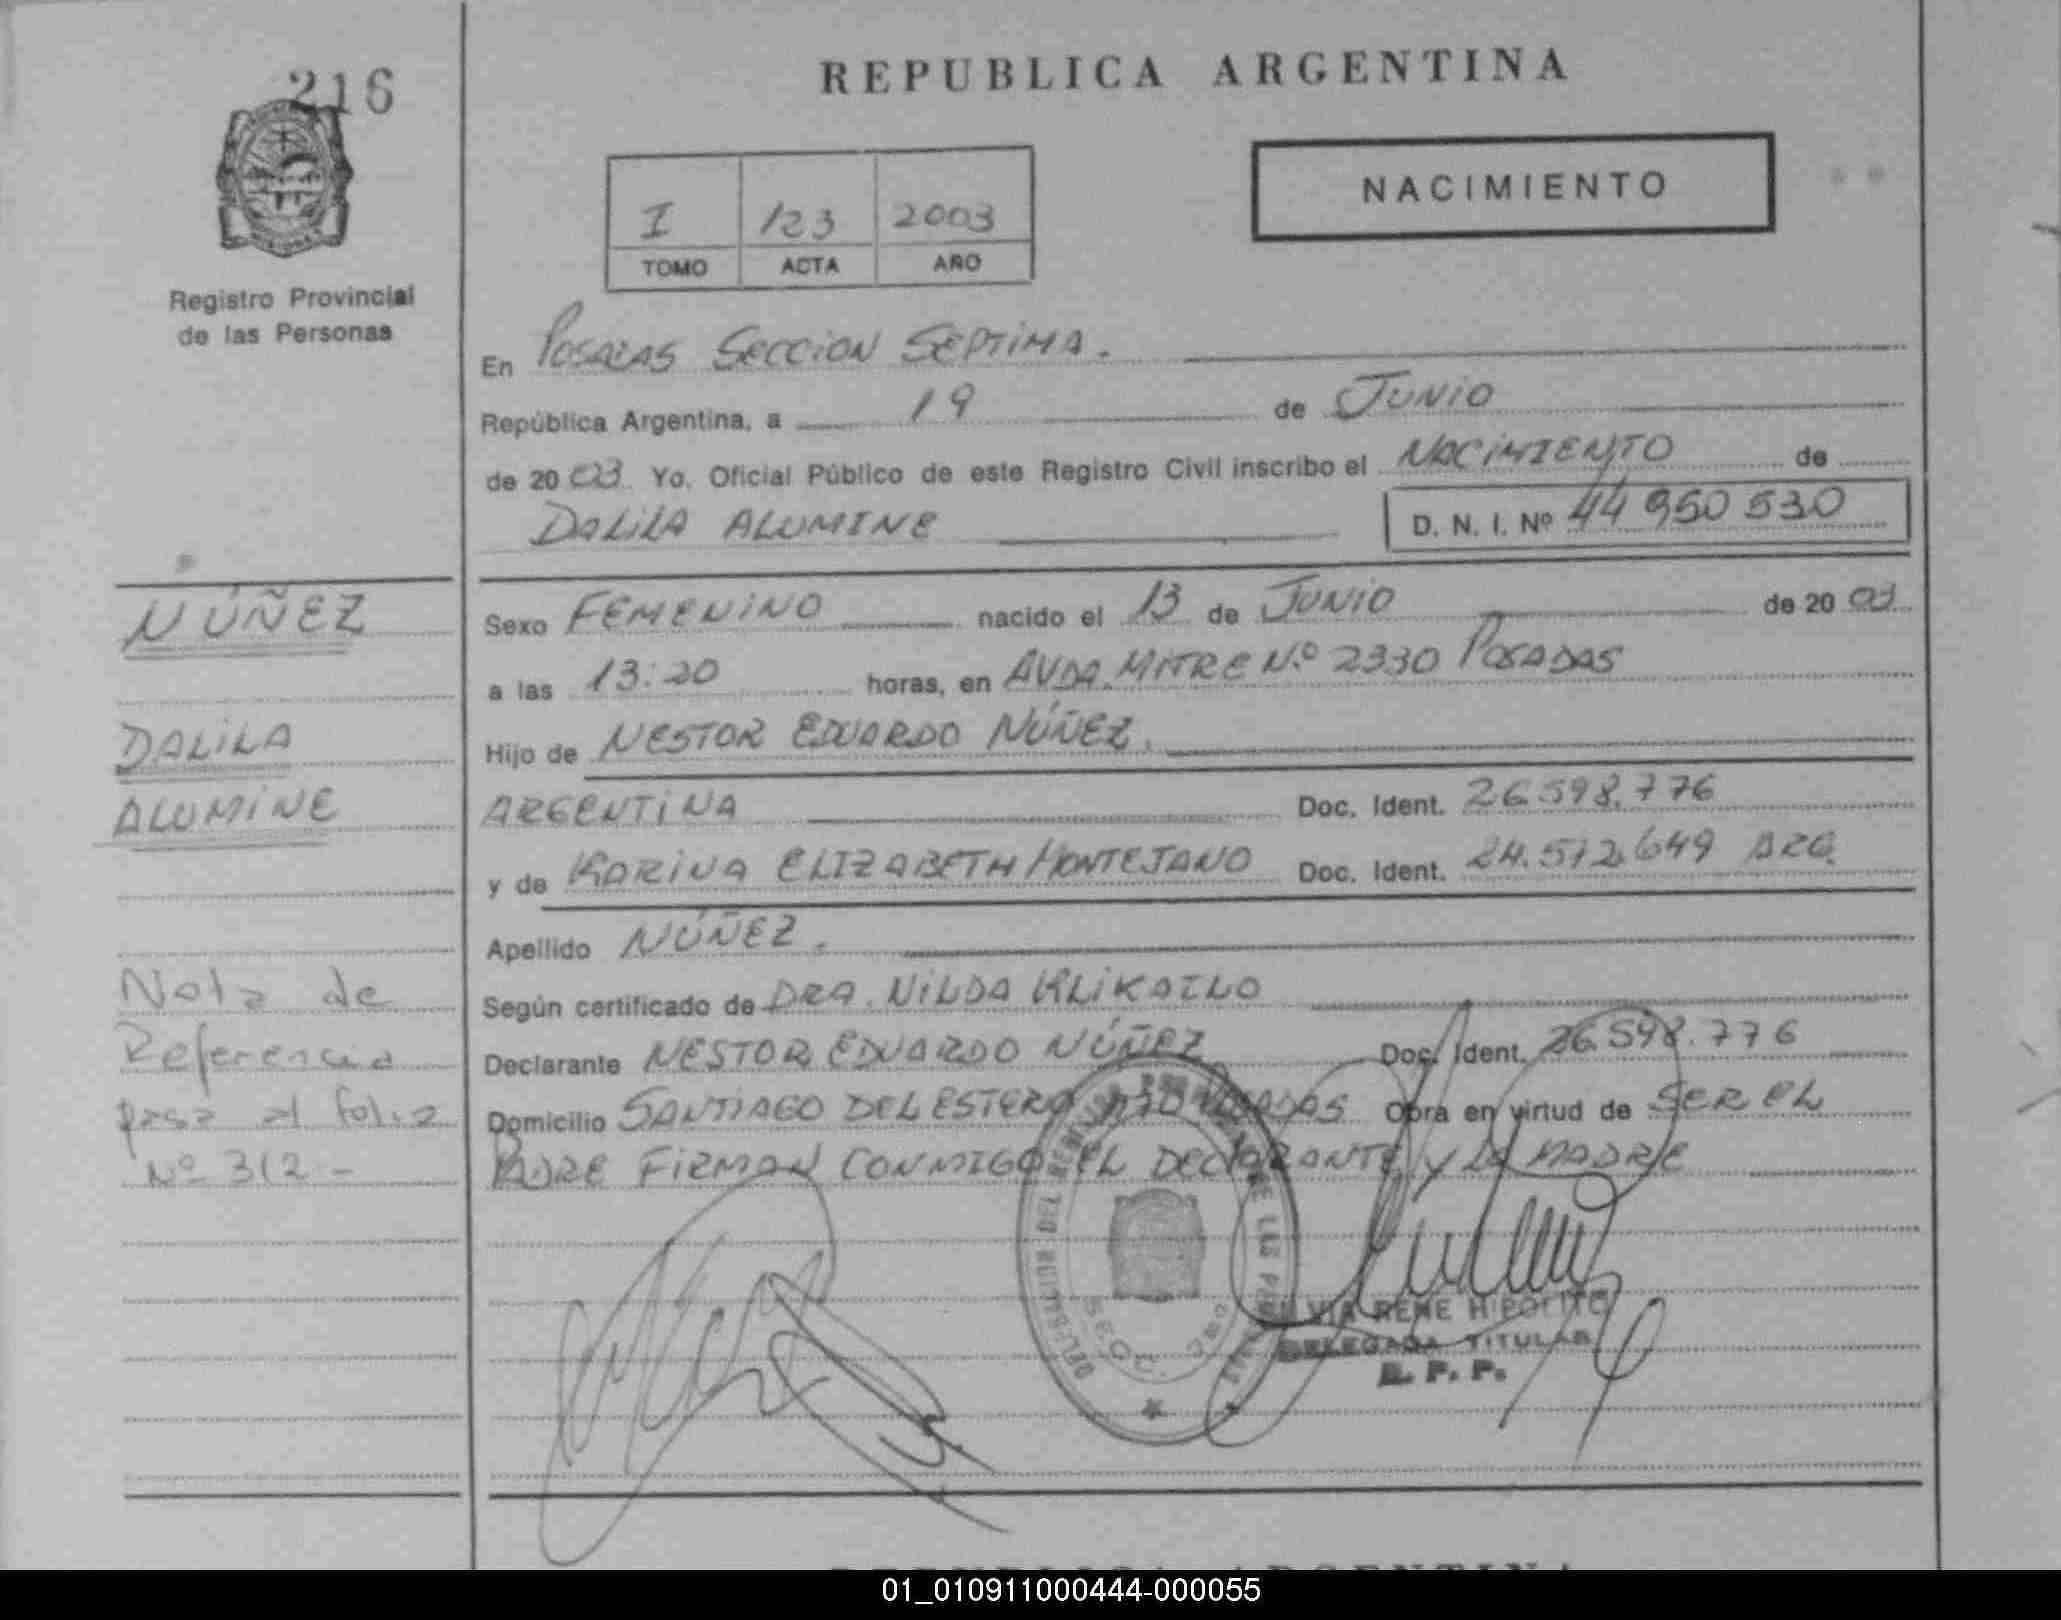 216
REPUBLICA ARGENTINA
NACIMIENTO
I 123 2003
TOMO ACTA AÑO
Registro Provincial
de las Personas
En POSADAS SECCION SEPTIMA.
República Argentina, a 19 de JUNIO
de 2003 Yo, Oficial Público de este Registro Civil inscribo el NACIMIENTO de
DALILA ALUMINE D. N. I. Nº 44 950 530
NÚÑEZ
DALILA
ALUMINE
Nota de
Referencia
pasa al folio
Nº 312 -
Sexo FEMENINO nacido el 13 de JUNIO de 2003
a las 13:20 horas, en AVDA. MITRE N.º 2330 POSADAS
Hijo de NESTOR EDUARDO NÚÑEZ.
ARGENTINA Doc. Ident. 26.598.776
y de KARINA ELIZABETH MONTEJANO Doc. Ident. 24.572.649 ARG.
Apellido NÚÑEZ.
Según certificado de DRA. NILDA KLIKAILO
Declarante NESTOR EDUARDO NÚÑEZ Doc. Ident. 26.598.776
Domicilio SANTIAGO DEL ESTERO POSADAS Obra en virtud de SER EL
PADRE FIRMAN CONMIGO EL DECLARANTE Y LA MADRE
SILVIA RENE HIPOLITO
DELEGADA TITULAR
R. P. P.
REPUBLICA ARGENTINA
01_010911000444-000055